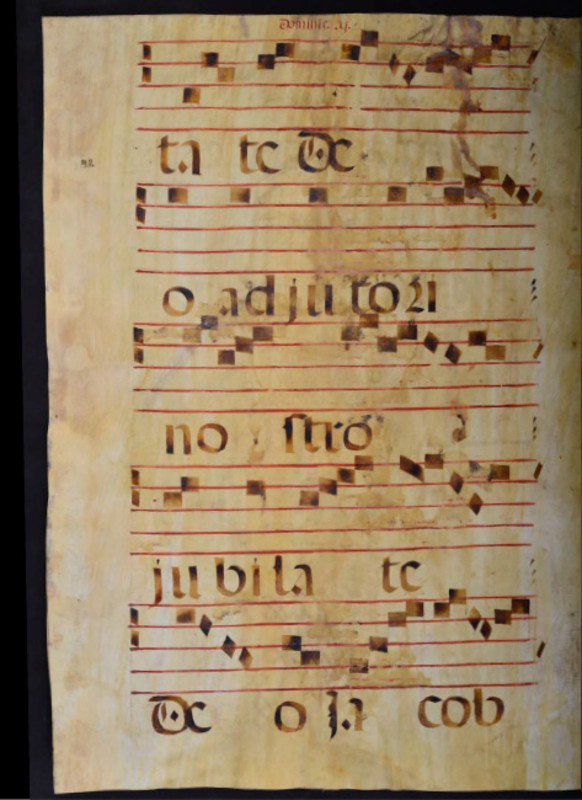 Dominic. XI.
ta te De
42
o adjutori
no stro
jubila te
De o Ja cob